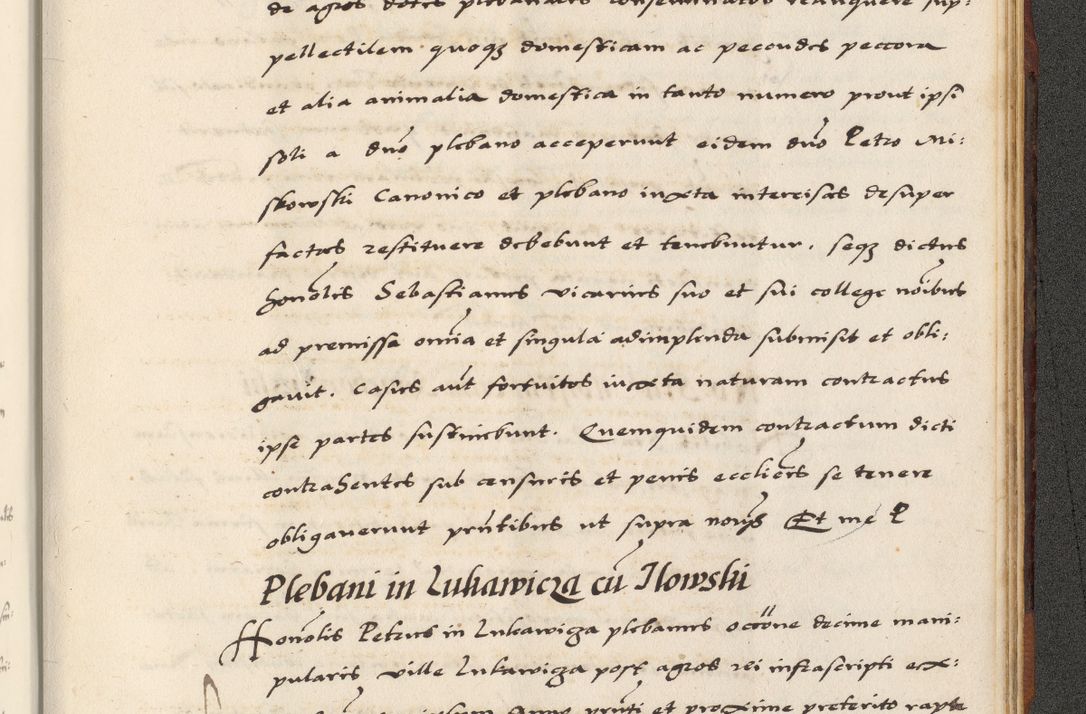 de agros dotis plebanales conseminatos relinquere sup-
pellectilem quoqȝ domesticam ac pecoudes peccora
et alia animalia domestica in tanto numero prout ipsi
soli a dno plebano acceperunt eidem dno Petro Mi:
skowski Canonico et plebano iuxta intercisas desuper
factas restituere debebunt et tenebuntur. seqȝ dictus
honolis Sebastianus vicarius suo et sui college noibus
ad premissa omia et singula adimplenda submisit et obli:
gavit. Casus aut fortuitos iuxta naturam contractus
ipse partes sustinebunt. Quemquidem contractum dicti
contrahentes sub censuris et penis ecclicis se tenere
obligaverunt pntibus ut supra Et me P
Plebani in Lukawicza cu Ilowski
Honolis Petrus in Lukawicza plebanus occone decime mani:
pularis ville Lukawicza post agros rei infrascripti ex:
Anno pnti et proxime preterito rapta